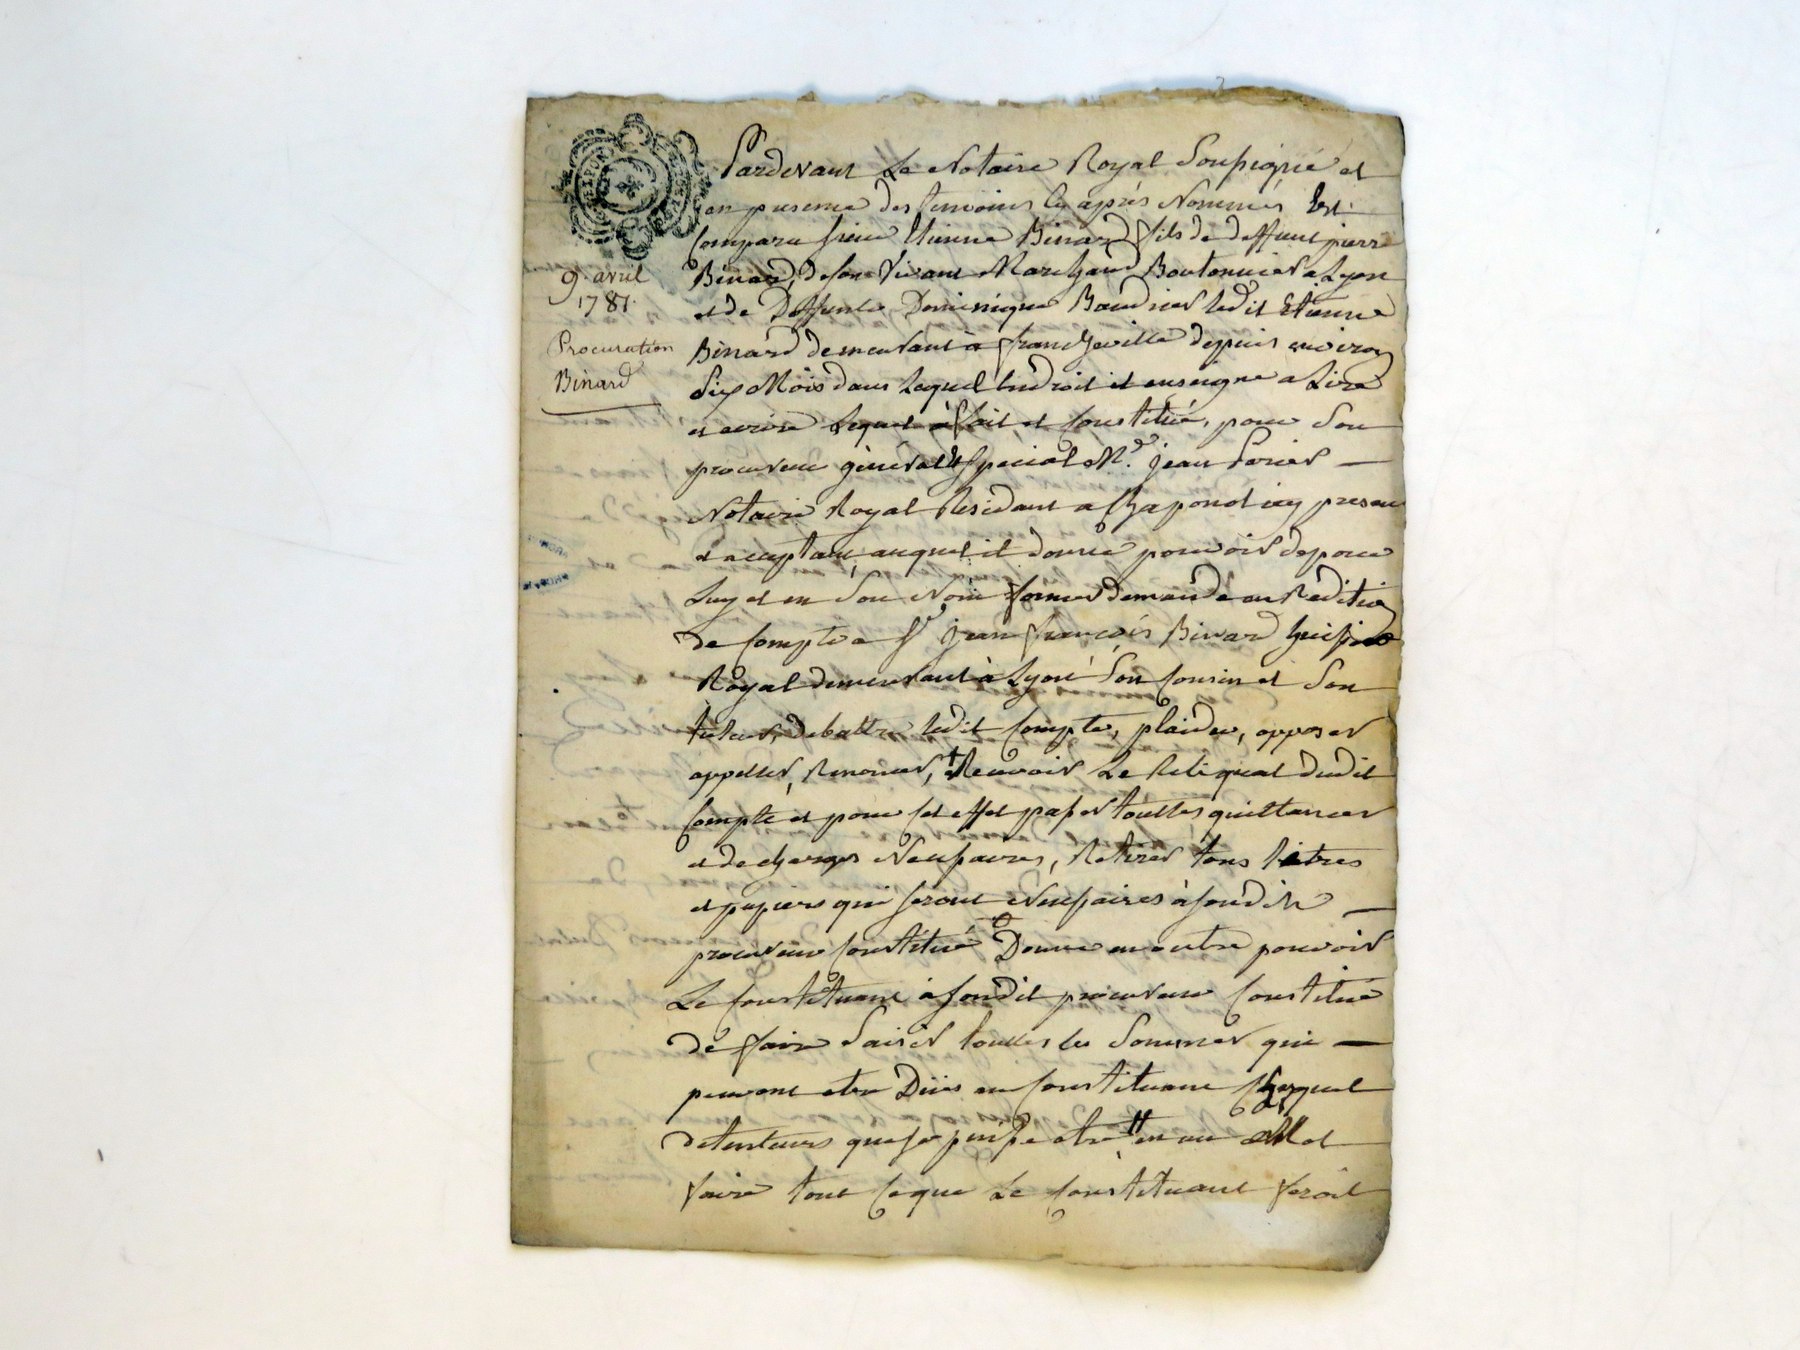 9. avril
1781.
Procuration
Binard
Pardevant Le Notaire Royal Soussigné et
en presence des temoins Cy après Nommés Est
Comparu sieur Etienne Binard fils de deffunt pierre
Binard, de son Vivant Marchand Boutonnier a Lyon
et de Deffunte Dominique Baudrier ledit Etienne
Binard demeurant a francheville depuis environ
Six Mois dans Lequel Endroit il enseigne a Lire
et ecrire Lequel à fait et Constitué, pour Son
procureur général & Special Me. jean Perier
Notaire Royal Residant a Chaponost icy present
et acceptant, auquel il donne pouvoir de pour
Luy et en Son Nom former demande en Reditio
de Compte a Sr jean françois Binard huissier
Royal demeurant à Lyon Son Cousin et Son
tuteur, debattre ledit Compte, plaider, opposer
appeller, Renoncer, + Recevoir Le Reliquat dudit
Compte et pour Cet effet passer touttes quittances
et decharges Necessaires, Retirer tous titres
et papiers qui seront Necessaires à sondit
procureur Constitué Donne en outre pouvoir
Le Constituant à sondit procureur Constitué
de faire Saisir touttes les Sommes qui
peuvent etre Dües au Constituant Chez quel
detenteurs que se puisse etre et
faire tout Ce que Le Constituant feroit